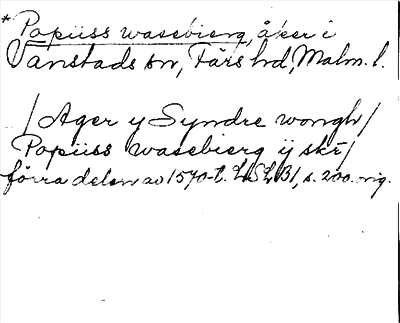 * Papiiss wasebierg, åker i
Vanstads sn, Färs hd, Malm. l.
/Ager y Syndre wongh/
Papiiss wasebierg ij skr/
förra delen av 1570-t. LSLB1, s. 200. rig.